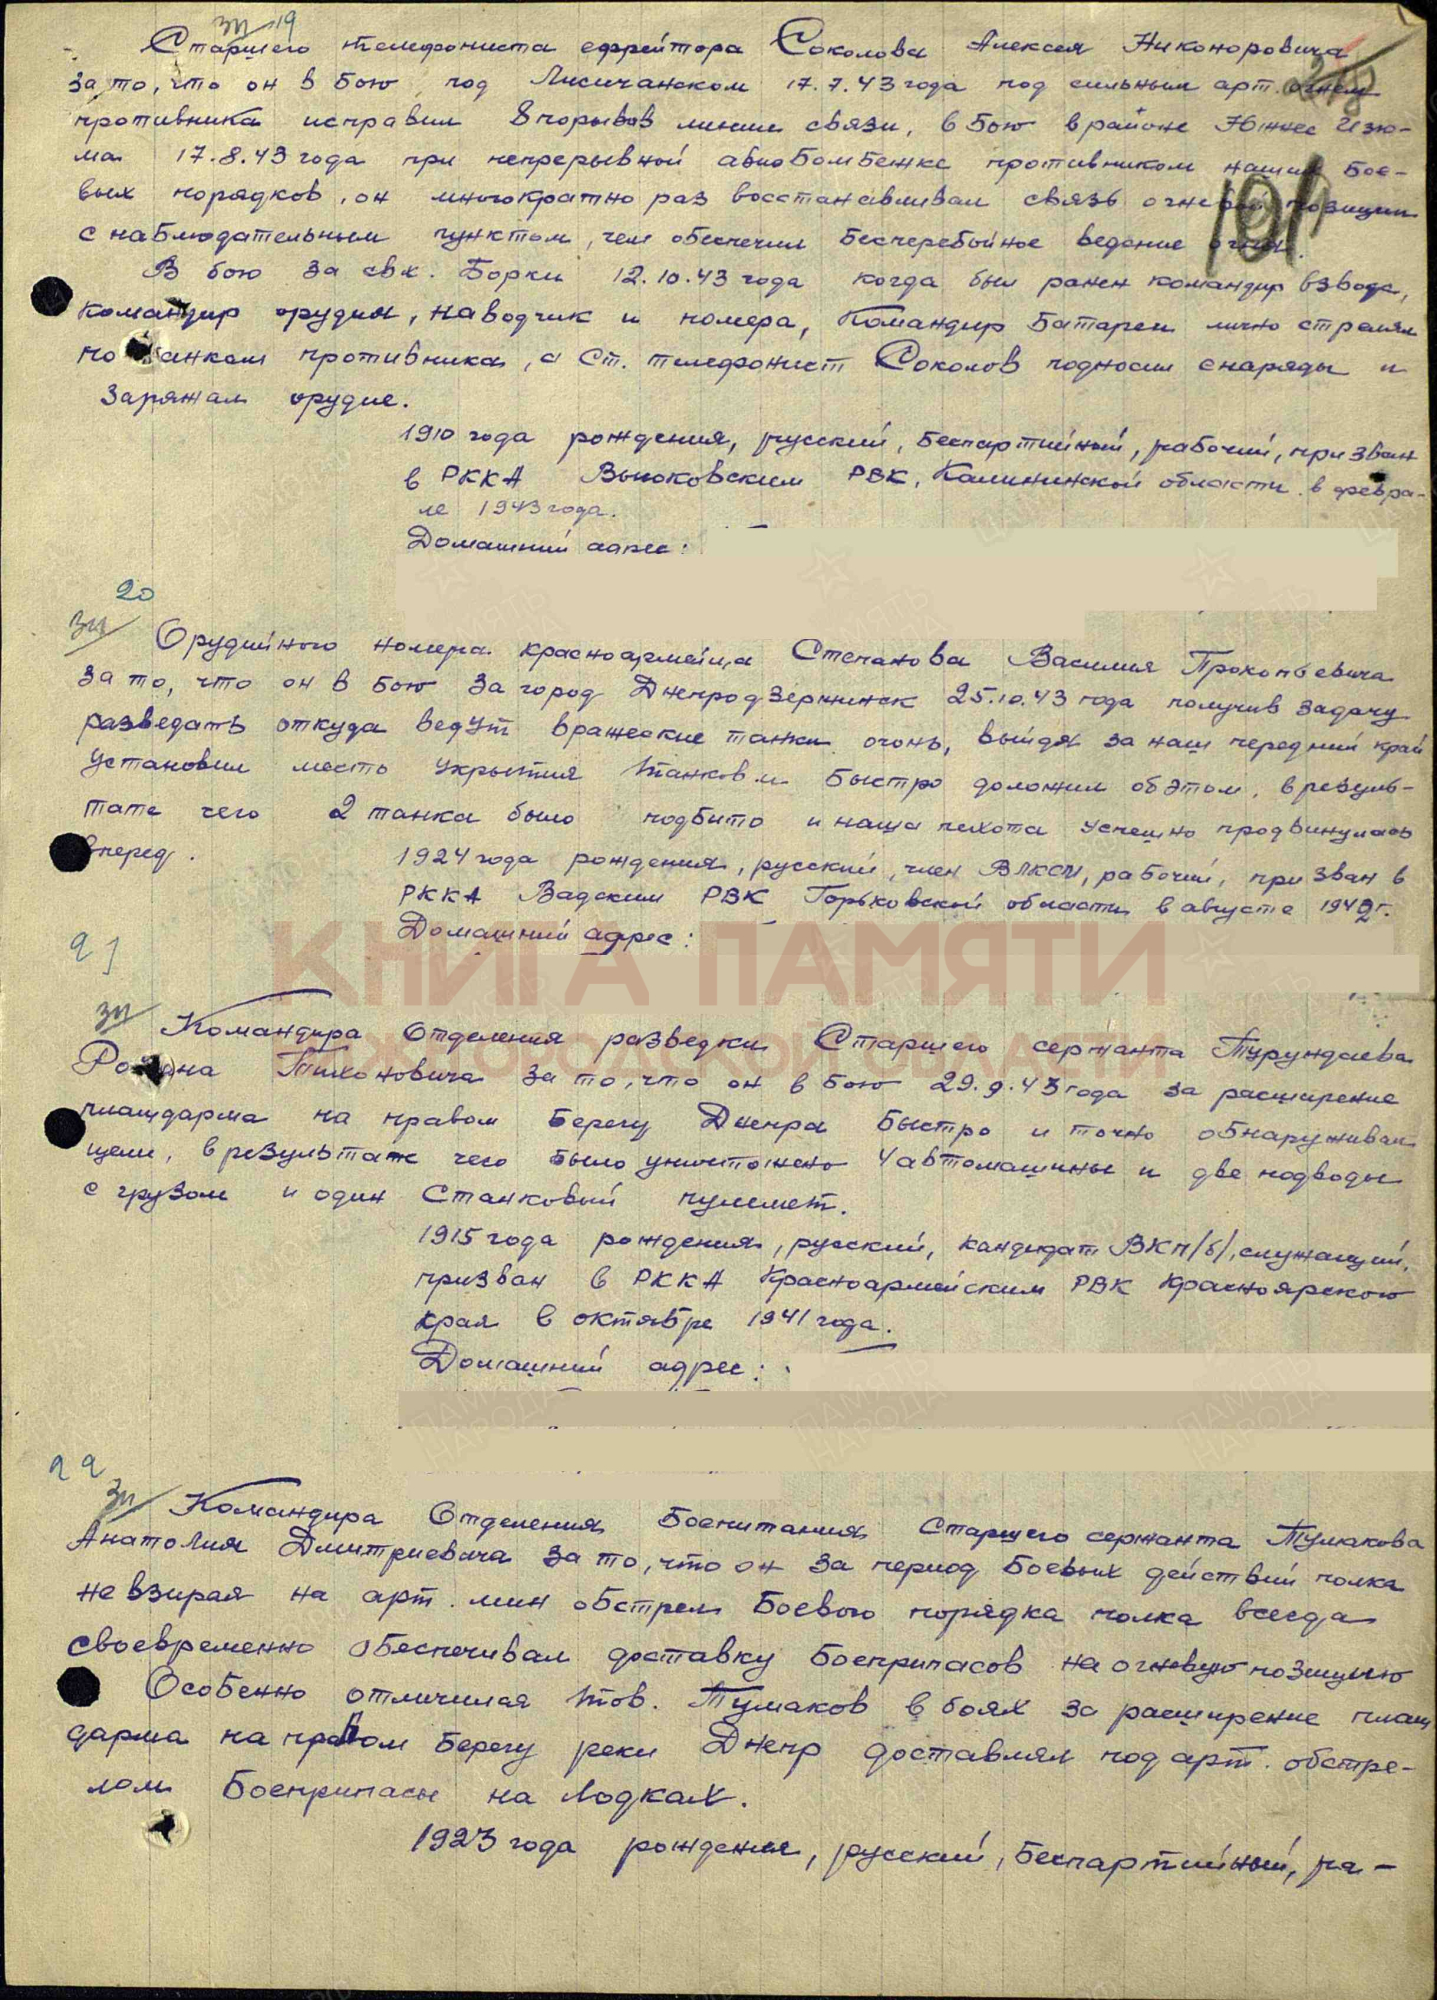 зп 19
Старшего телефониста ефрейтора Соколова Алексея Никоноровича
за то, что он в бою под Лисичанском 17.7.43 года под сильным арт. огнем
противника исправил 8 порывов линии связи, в бою в районе Южнее Изю-
ма 17.8.43 года при непрерывной авиобомбежке противником наших бое-
вых порядков, он многократно раз восстанавливал связь огневой позиции
с наблюдательным пунктом, чем обеспечил бесперебойное ведение огня.
101
В бою за свх. Борки 12.10.43 года когда был ранен командир взвода,
командир орудия, наводчик и номера, Командир батареи лично стрелял
по танкам противника, а Ст. телефонист Соколов подносил снаряды и
заряжал орудие.
1910 года рождения, русский, беспартийный, рабочий, призван
в РККА Высоковским РВК, Калининской области в февра-
ле 1943 года.
Домашний адрес:
20
зп
Орудийного номера красноармейца Степанова Василия Прокопьевича
за то, что он в бою за город Днепродзержинск 25.10.43 года получив задачу
разведать откуда ведут вражеские танки огонь, выйдя за наш передний край
установил место укрытия танков и быстро доложил об этом, в резуль-
тате чего 2 танка было подбито и наша пехота успешно продвинулась
вперед.
1924 года рождения, русский, член ВЛКСМ, рабочий, призван в
РККА Вадским РВК Горьковской области в августе 1942 г.
Домашний адрес:
КНИГА ПАМЯТИ
21
зп
Командира Отделения разведки Старшего сержанта Турундаева
Романа Тихоновича за то, что он в бою 29.9.43 года за расширение
плацдарма на правом берегу Днепра быстро и точно обнаруживал
цели, в результате чего было уничтожено 4 автомашины и две подводы
с грузом и один Станковый пулемет.
1915 года рождения, русский, кандидат ВКП/б/, служащий,
призван в РККА Красноармейским РВК Красноярского
края в октябре 1941 года.
Домашний адрес:
ПАМЯТЬ НАРОДА
22
зп
Командира Отделения Боепитания Старшего сержанта Тумакова
Анатолия Дмитриевича за то, что он за период боевых действий полка
не взирая на арт. мин обстрел боевого порядка полка всегда
своевременно обеспечивал доставку боеприпасов на огневую позицию
Особенно отличился тов. Тумаков в боях за расширение плац
дарма на правом берегу реки Днепр доставлял под арт. обстре-
лом боеприпасы на лодках.
1923 года рождения, русский, беспартийный, ра-